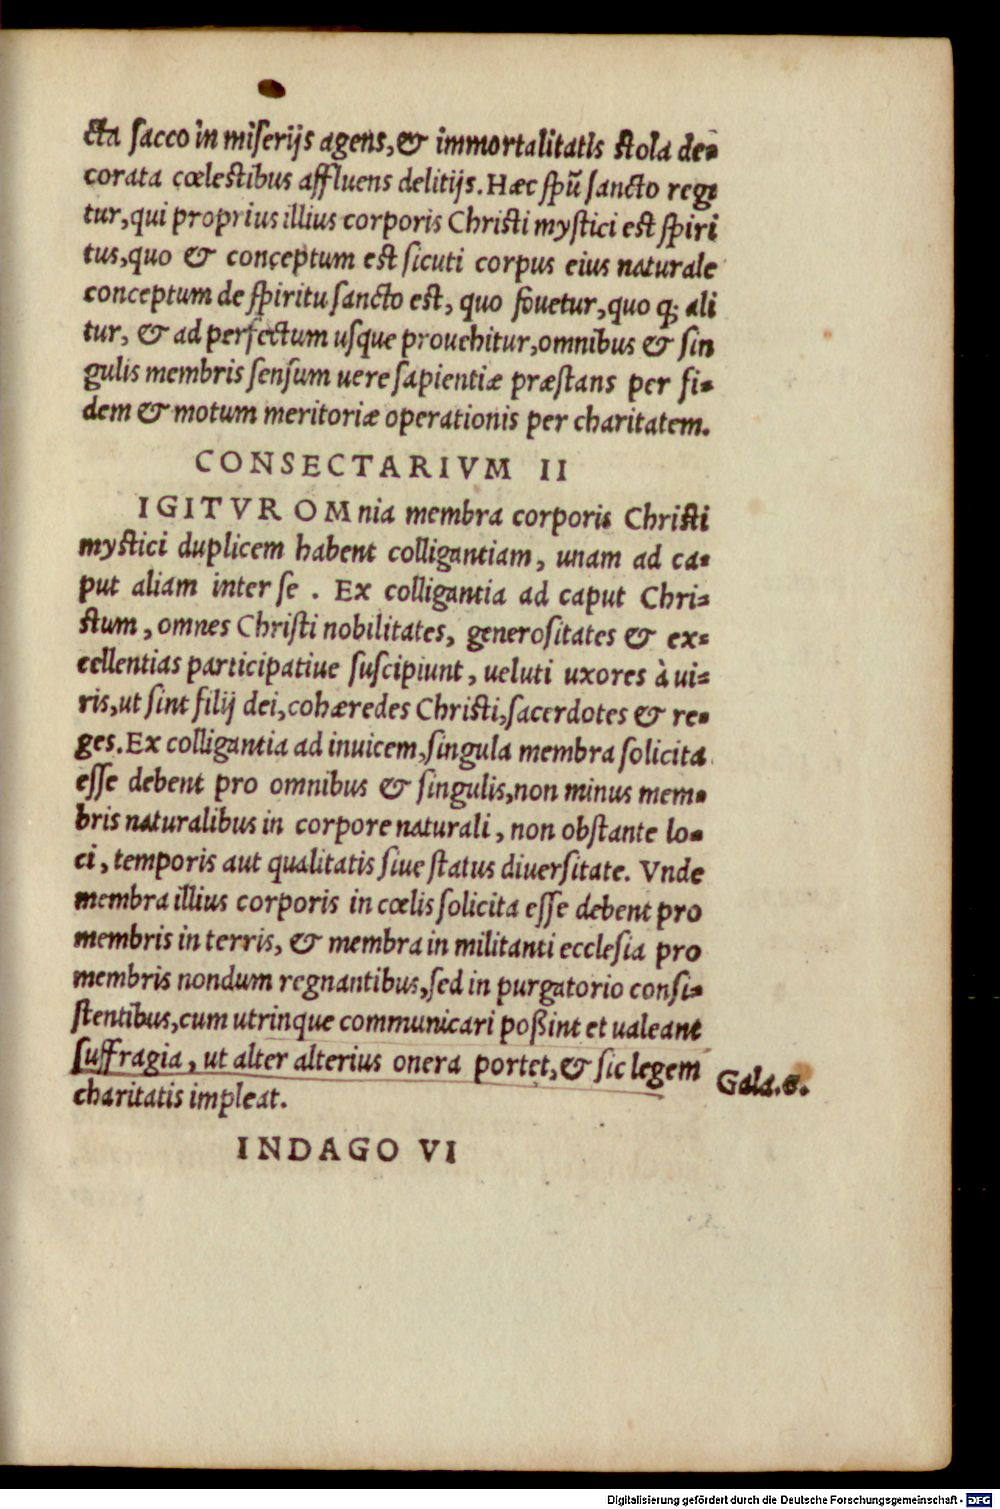 cta sacco in miserijs agens, & immortalitatis stola de-
corata cœlestibus affluens delitijs. Hæc spũ sancto regi
tur, qui proprius illius corporis Christi mystici est spiri
tus, quo & conceptum est sicuti corpus eius naturale
conceptum de spiritu sancto est, quo fouetur, quo q; ali
tur, & ad perfectum usque prouehitur, omnibus & sin
gulis membris sensum uere sapientiæ præstans per fi-
dem & motum meritoriæ operationis per charitatem.
CONSECTARIVM II
IGITVR OMnia membra corporis Christi
mystici duplicem habent colligantiam, unam ad ca-
put aliam inter se . Ex colligantia ad caput Chri-
stum, omnes Christi nobilitates, generositates & ex-
cellentias participatiue suscipiunt, ueluti uxores à ui-
ris, ut sint filij dei, cohæredes Christi, sacerdotes & re-
ges. Ex colligantia ad inuicem, singula membra solicita
esse debent pro omnibus & singulis, non minus mem-
bris naturalibus in corpore naturali, non obstante lo-
ci, temporis aut qualitatis siue status diuersitate. Vnde
membra illius corporis in cœlis solicita esse debent pro
membris in terris, & membra in militanti ecclesia pro
membris nondum regnantibus, sed in purgatorio consi-
stentibus, cum utrinque communicari poßint et ualeant
suffragia, ut alter alterius onera portet, & sic legem
charitatis impleat.
Gala. 6.
INDAGO VI
Digitalisierung gefördert durch die Deutsche Forschungsgemeinschaft - DFG